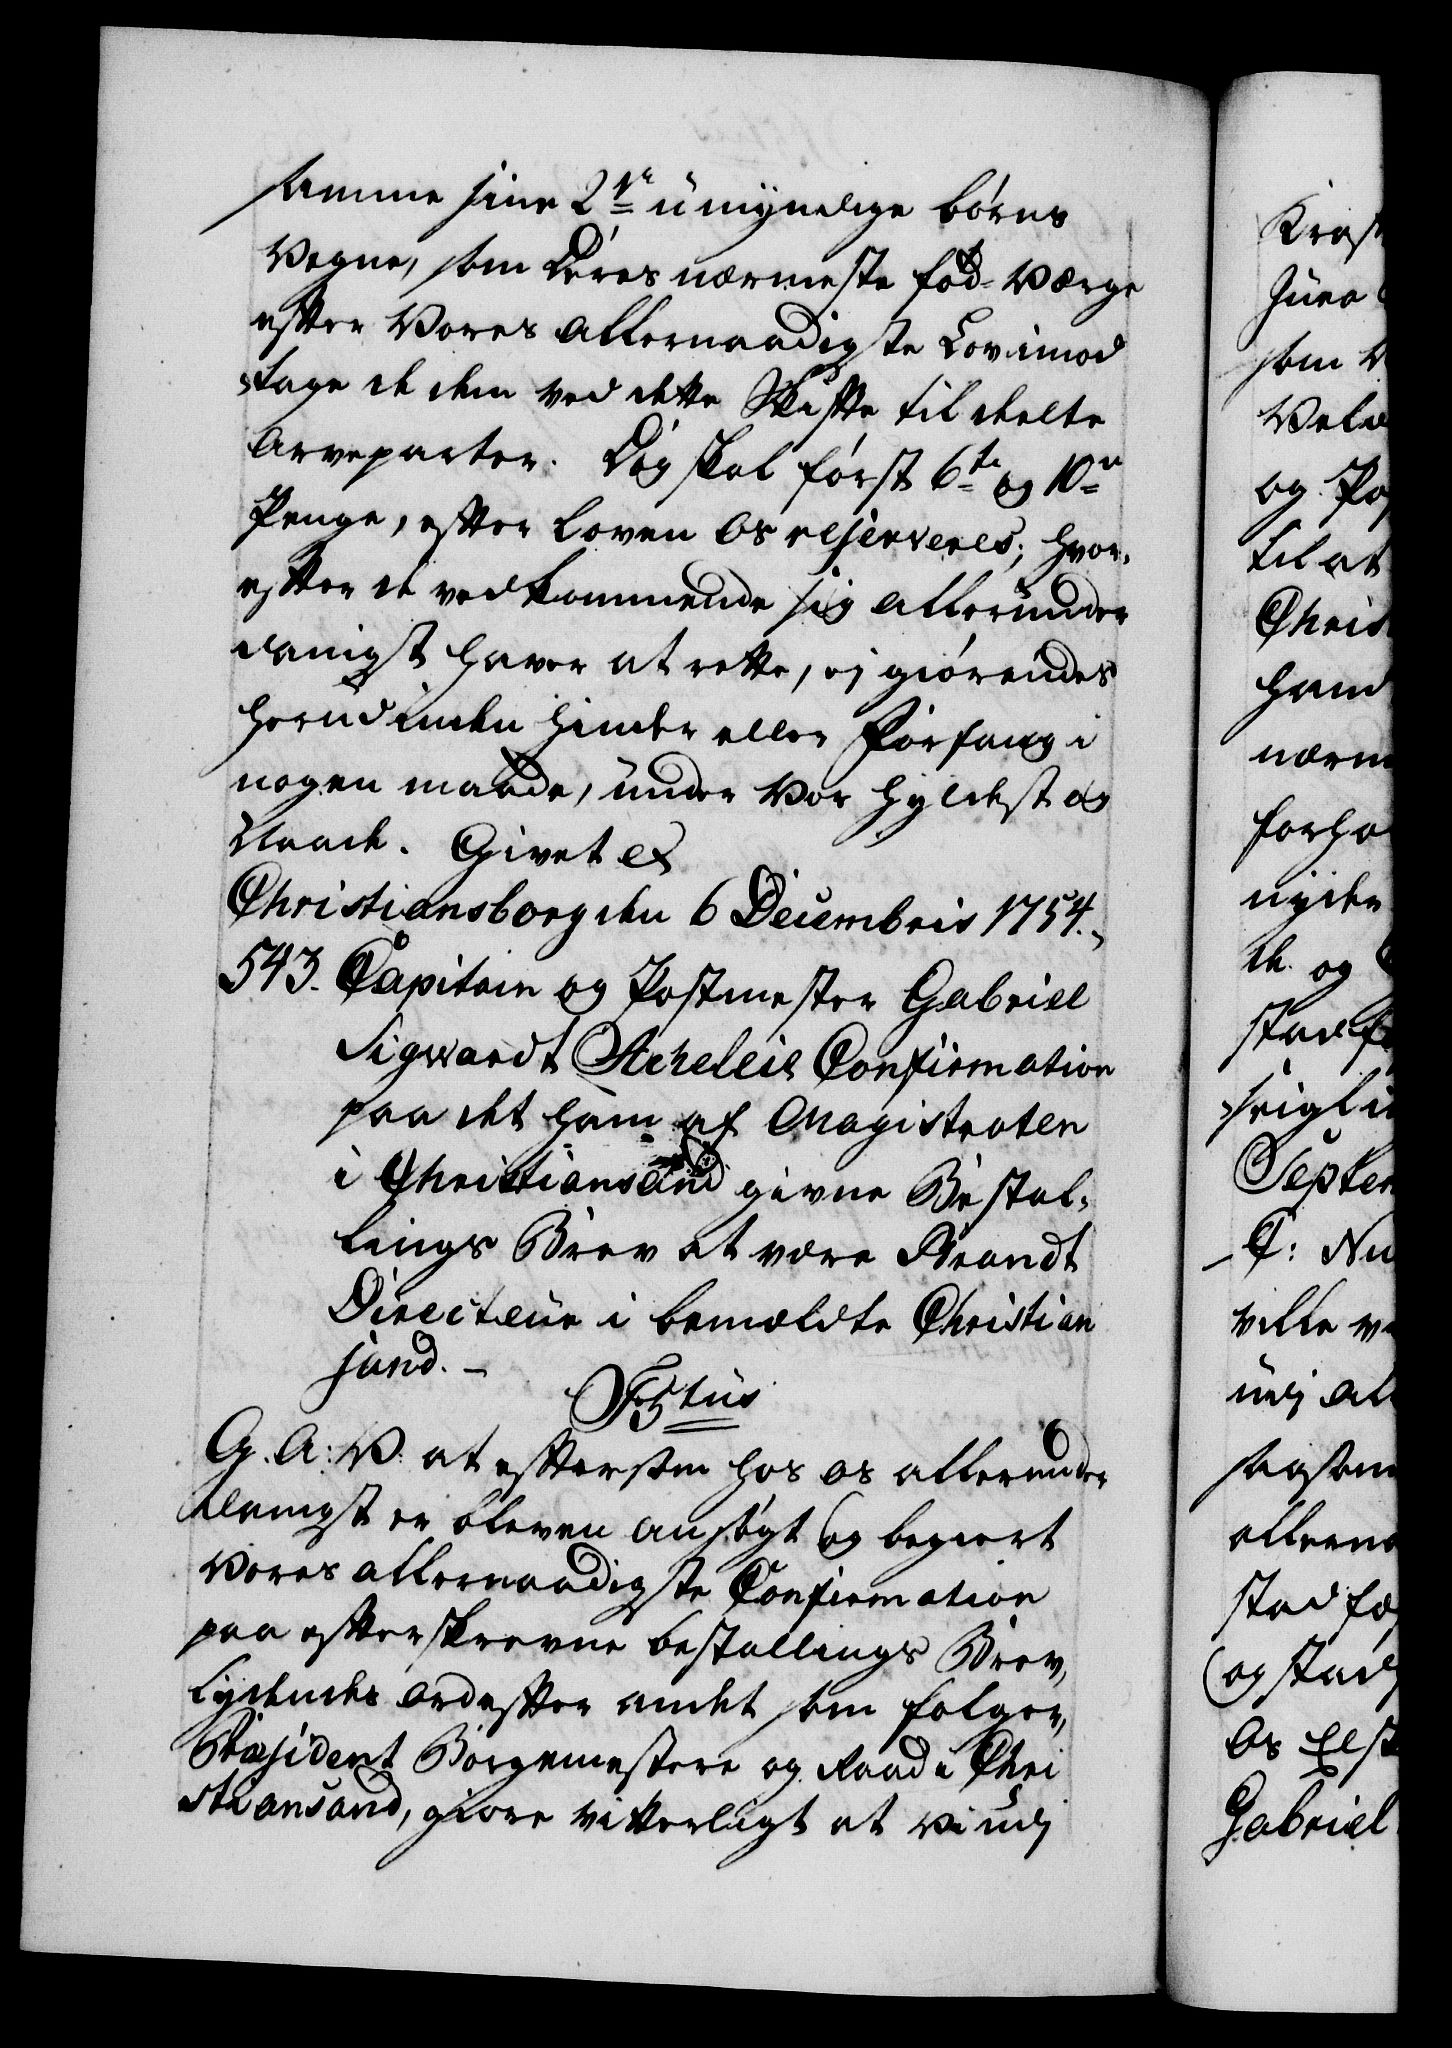 samme sine 2de umyndige børns
Vegne, som deres nærmeste fød-Værge
efter Vores allernaadigste Lov imod
tage de dem ved dette Skifte tildeelte
Arveparter. Dog skal først 6te og 10de
Penge, efter Loven Os reserveres; hvor-
efter de vedkommende sig allerunder
danigst haver at rette, ej giørendes
herudinden Hinder eller Forfang i
nogen maade, under Vor Hyldest og
Naade. Givet etc
Christiansborg den 6 Decembris 1754.
543. Capitain og Postmester Gabriel
Sigvardt Acheleis Confirmation
paa det ham af Magistraten
i Christiansand givne Bestal-
lings Brev at være Brandt
Directeur i bemældte Christian
sand. -
F5tus
G. A: V. at eftersom hos os allerunder
danigst er bleven ansøgt og begiert
Vores allernaadigste Confirmation
paa efterskrevne bestallings Brev,
lydendes ord efter andet som følger,
Præsident Borgemestere og Raad i Chri
stiansand, giøre vitterligt at Vi udj
som V
og Po
til at
Chris
hand
nærm
forho
nyde
de og
Septem
C: Nu
ville v
udj al
allerna
stadfæ
og stad
Gabriel